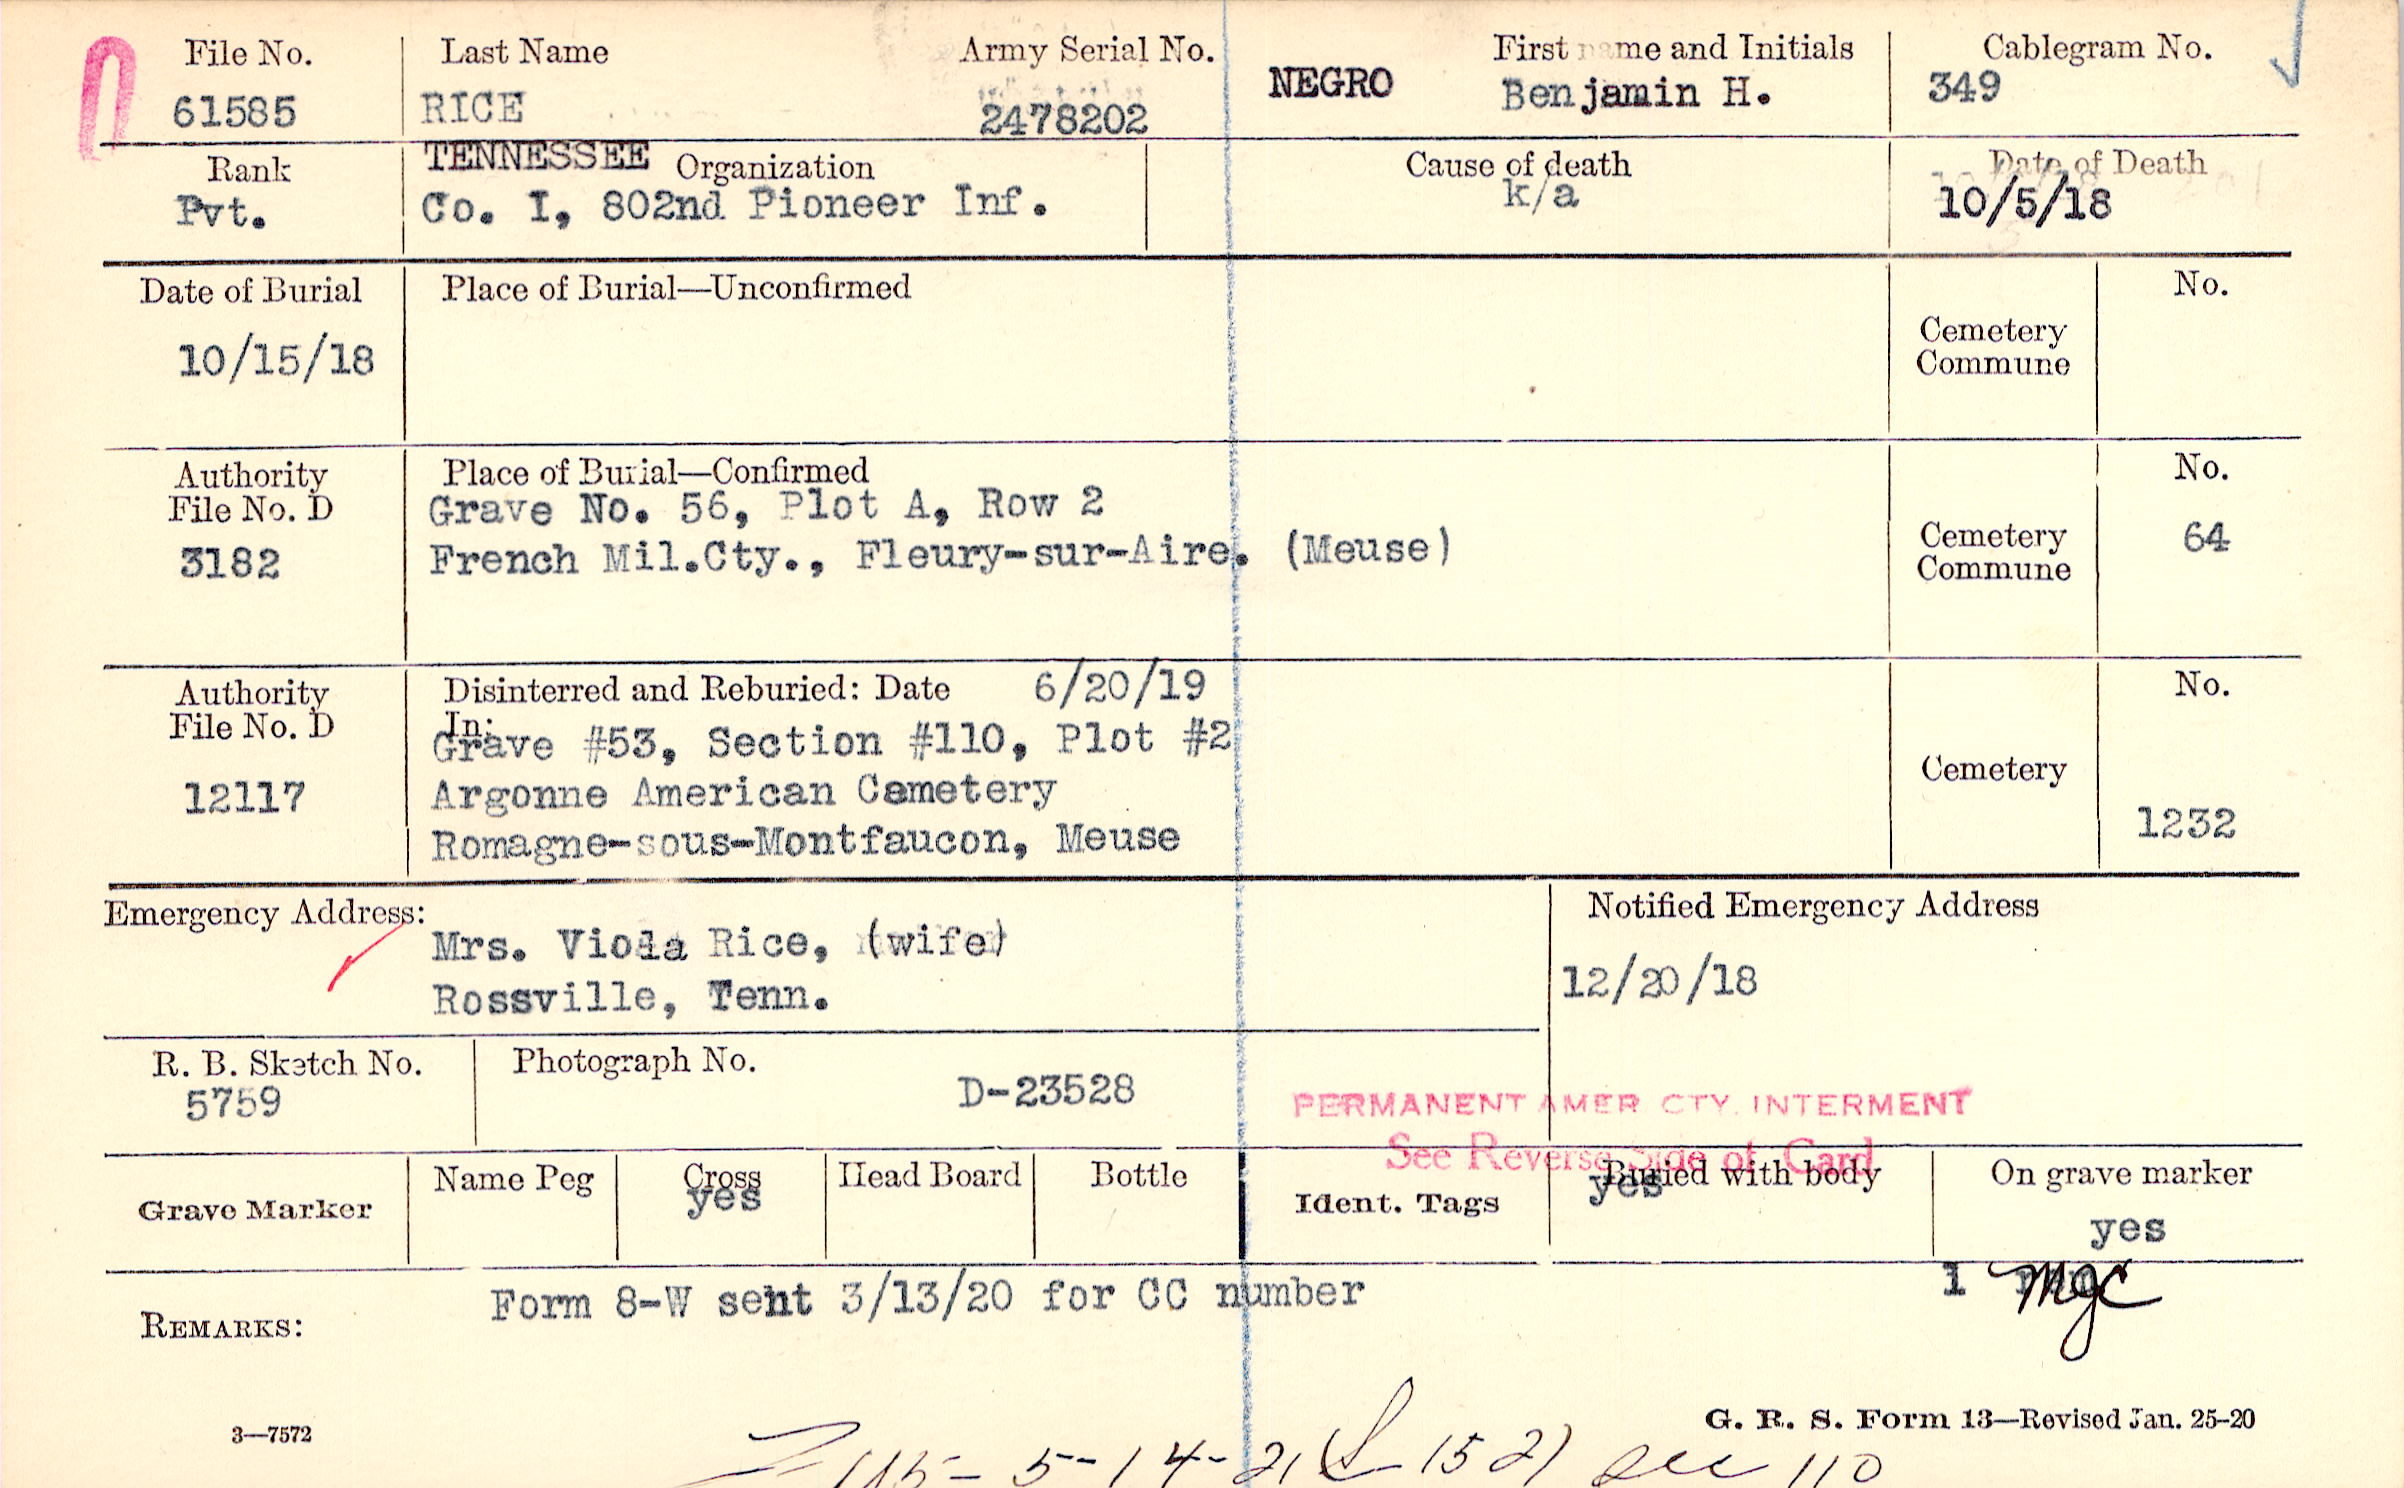 File No. Last Name Army Serial No. First name and Initials Cablegram No.
61585 RICE 2478202 NEGRO Benjamin H. 349
Rank TENNESSEE Organization Cause of death Date of Death
Pvt. Co. I, 802nd Pioneer Inf. k/a 10/5/18
Date of Burial Place of Burial—Unconfirmed No.
10/15/18 Cemetery
Commune
Authority Place of Burial—Confirmed No.
File No. D Grave No. 56, Plot A, Row 2
3182 French Mil.Cty., Fleury-sur-Aire. (Meuse) Cemetery 64
Commune
Authority Disinterred and Reburied: Date 6/20/19 No.
File No. D In:
Grave #53, Section #110, Plot #2
12117 Argonne American Cemetery Cemetery
Romagne-sous-Montfaucon, Meuse 1232
Emergency Address: Notified Emergency Address
Mrs. Viola Rice, (wife) 12/20/18
Rossville, Tenn.
R. B. Sketch No. Photograph No.
5759 D-23528 PERMANENT AMER CTY. INTERMENT
See Reverse Side of Card
Grave Marker Name Peg Cross Head Board Bottle Ident. Tags Buried with body On grave marker
yes yes yes
1 MJC
REMARKS: Form 8-W sent 3/13/20 for CC number
3—7572 G. R. S. Form 13—Revised Jan. 25-20
5-14-21 1521 sec 110